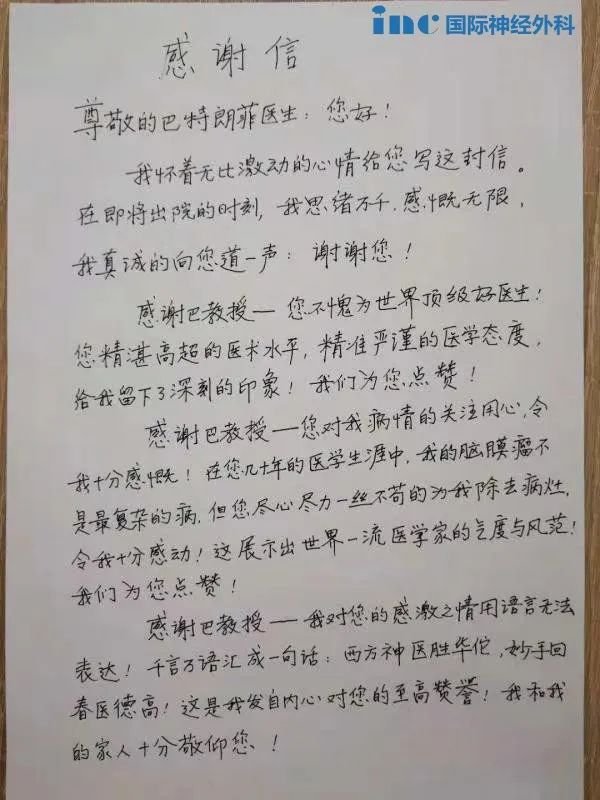 inc 国际神经外科
感谢信
尊敬的巴特朗菲医生：您好！
我怀着无比激动的心情给您写这封信。
在即将出院的时刻，我思绪万千，感慨无限，
我真诚的向您道一声：谢谢您！
感谢巴教授——您不愧为世界顶级好医生！
您精湛高超的医术水平，精准严谨的医学态度，
给我留下了深刻的印象！我们为您点赞！
感谢巴教授——您对我病情的关注用心，令
我十分感慨！在您几十年的医学生涯中，我的脑膜瘤不
是最复杂的病，但您尽心尽力一丝不苟的为我除去病灶，
令我十分感动！这展示出世界一流医学家的气度与风范！
我们为您点赞！
感谢巴教授——我对您的感激之情用语言无法
表达！千言万语汇成一句话：西方神医胜华佗，妙手回
春医德高！这是我发自内心对您的至高赞誉！我和我
的家人十分敬仰您！